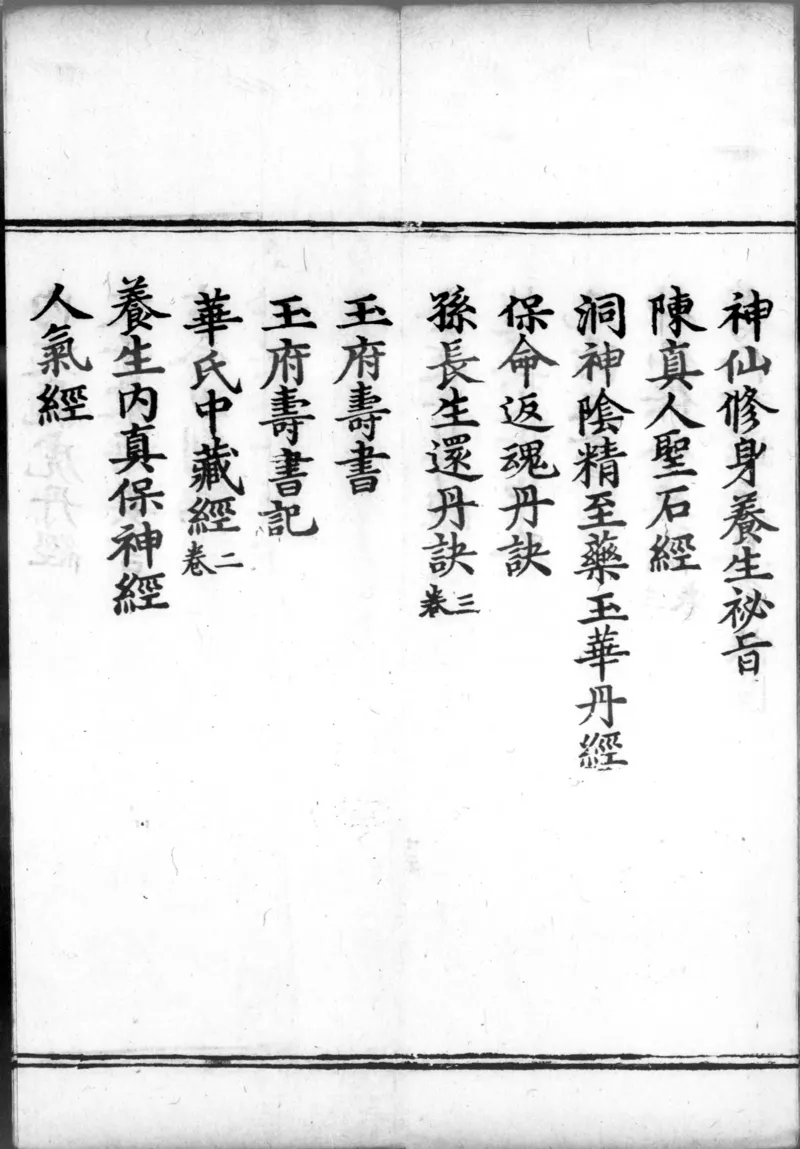 神仙修身養生祕旨
陳真人聖石經
洞神陰精至藥玉華丹經
保命返魂丹訣
孫長生還丹訣三卷
玉府壽書
王府壽書記
華氏中藏經二卷
養生內真保神經
人氣經